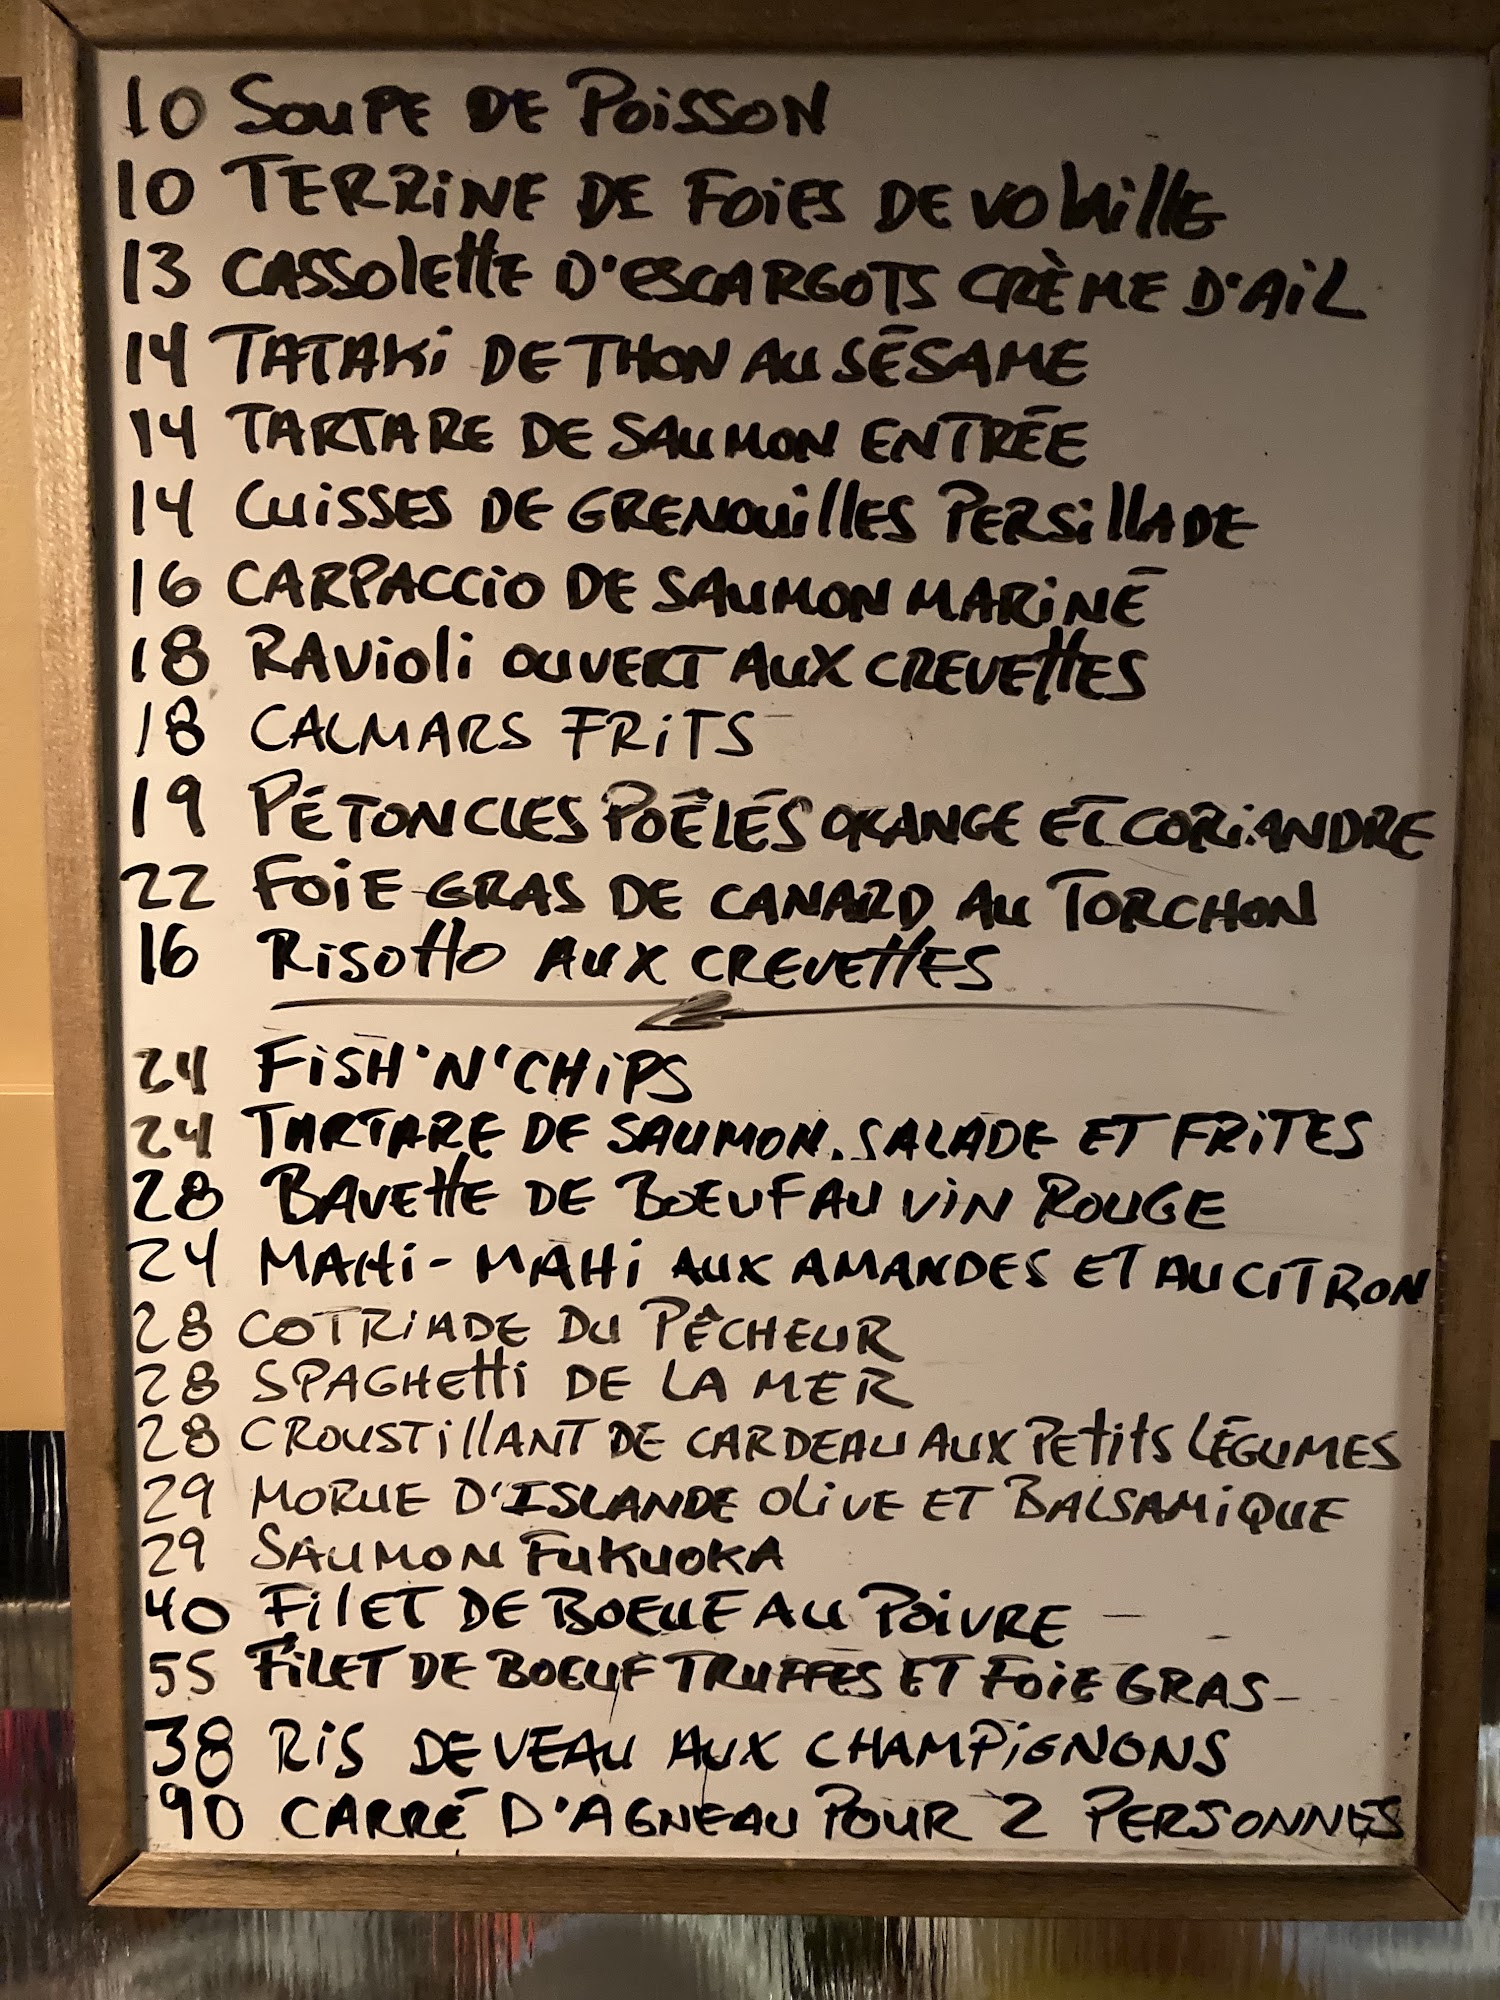 10 SOUPE DE POISSON
10 TERRINE DE FOIES DE VOLAILLE
13 CASSOLETTE D'ESCARGOTS CRÈME D'AIL
14 TATAKI DE THON AU SÉSAME
14 TARTARE DE SAUMON ENTRÉE
14 CUISSES DE GRENOUILLES PERSILLADE
16 CARPACCIO DE SAUMON MARINÉ
18 RAVIOLI OUVERT AUX CREVETTES
18 CALMARS FRITS
19 PÉTONCLES POÊLÉS ORANGE ET CORIANDRE
22 FOIE GRAS DE CANARD AU TORCHON
16 RISOTTO AUX CREVETTES
24 FISH'N'CHIPS
24 TARTARE DE SAUMON. SALADE ET FRITES
28 BAVETTE DE BOEUF AU VIN ROUGE
24 MAHI-MAHI AUX AMANDES ET AU CITRON
28 COTRIADE DU PÊCHEUR
28 SPAGHETTI DE LA MER
28 CROUSTILLANT DE CARDEAU AUX PETITS LÉGUMES
29 MORUE D'ISLANDE OLIVE ET BALSAMIQUE
29 SAUMON FUKUOKA
40 FILET DE BOEUF AU POIVRE
55 FILET DE BOEUF TRUFFES ET FOIE GRAS
38 RIS DE VEAU AUX CHAMPIGNONS
90 CARRÉ D'AGNEAU POUR 2 PERSONNES